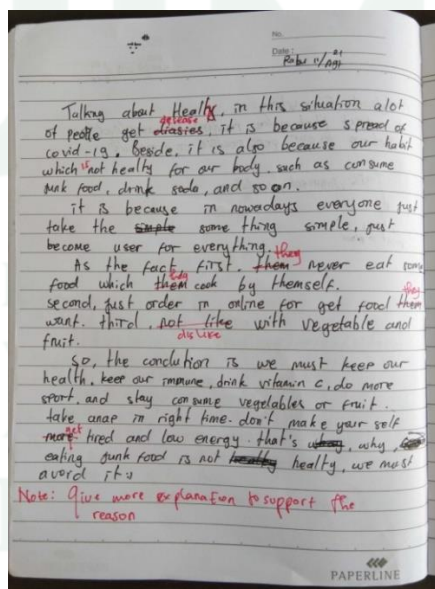 No.
Date :
Rabu 11/Agt 21
Talking about Healty, in this situation alot
disease
of people get diasies, it is because spread of
covid-19. Beside, it is also because our habit
which is not healty for our body, such as consume
junk food, drink soda, and so on.
it is because in nowadays everyone just
take the simple some thing simple, just
become user for everything.
they
As the fact first. them never eat some
they
food which them cook by themself.
they
second, just order in online for get food them
want. third, not like with vegetable and
dislike
fruit.
So, the conclution is we must keep our
health, keep our immune, drink vitamin c, do more
sport, and stay consume vegetables or fruit.
take anap in right time. don't make your self
get
more tired and low energy. that's why,
eating junk food is not healty healty, we must
avoid it
Note: Give more explanation to support the
reason
PAPERLINE